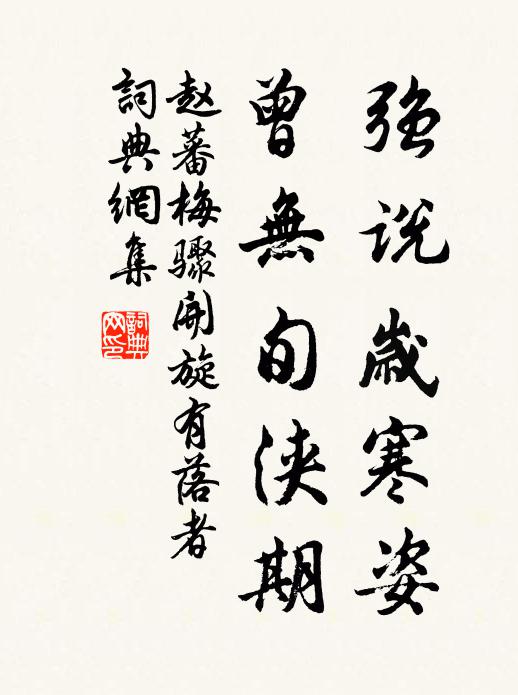 强说歲寒姿
曾無旬浹期
赵蕃梅驟開旋有落者
詞典網集
詞典網印